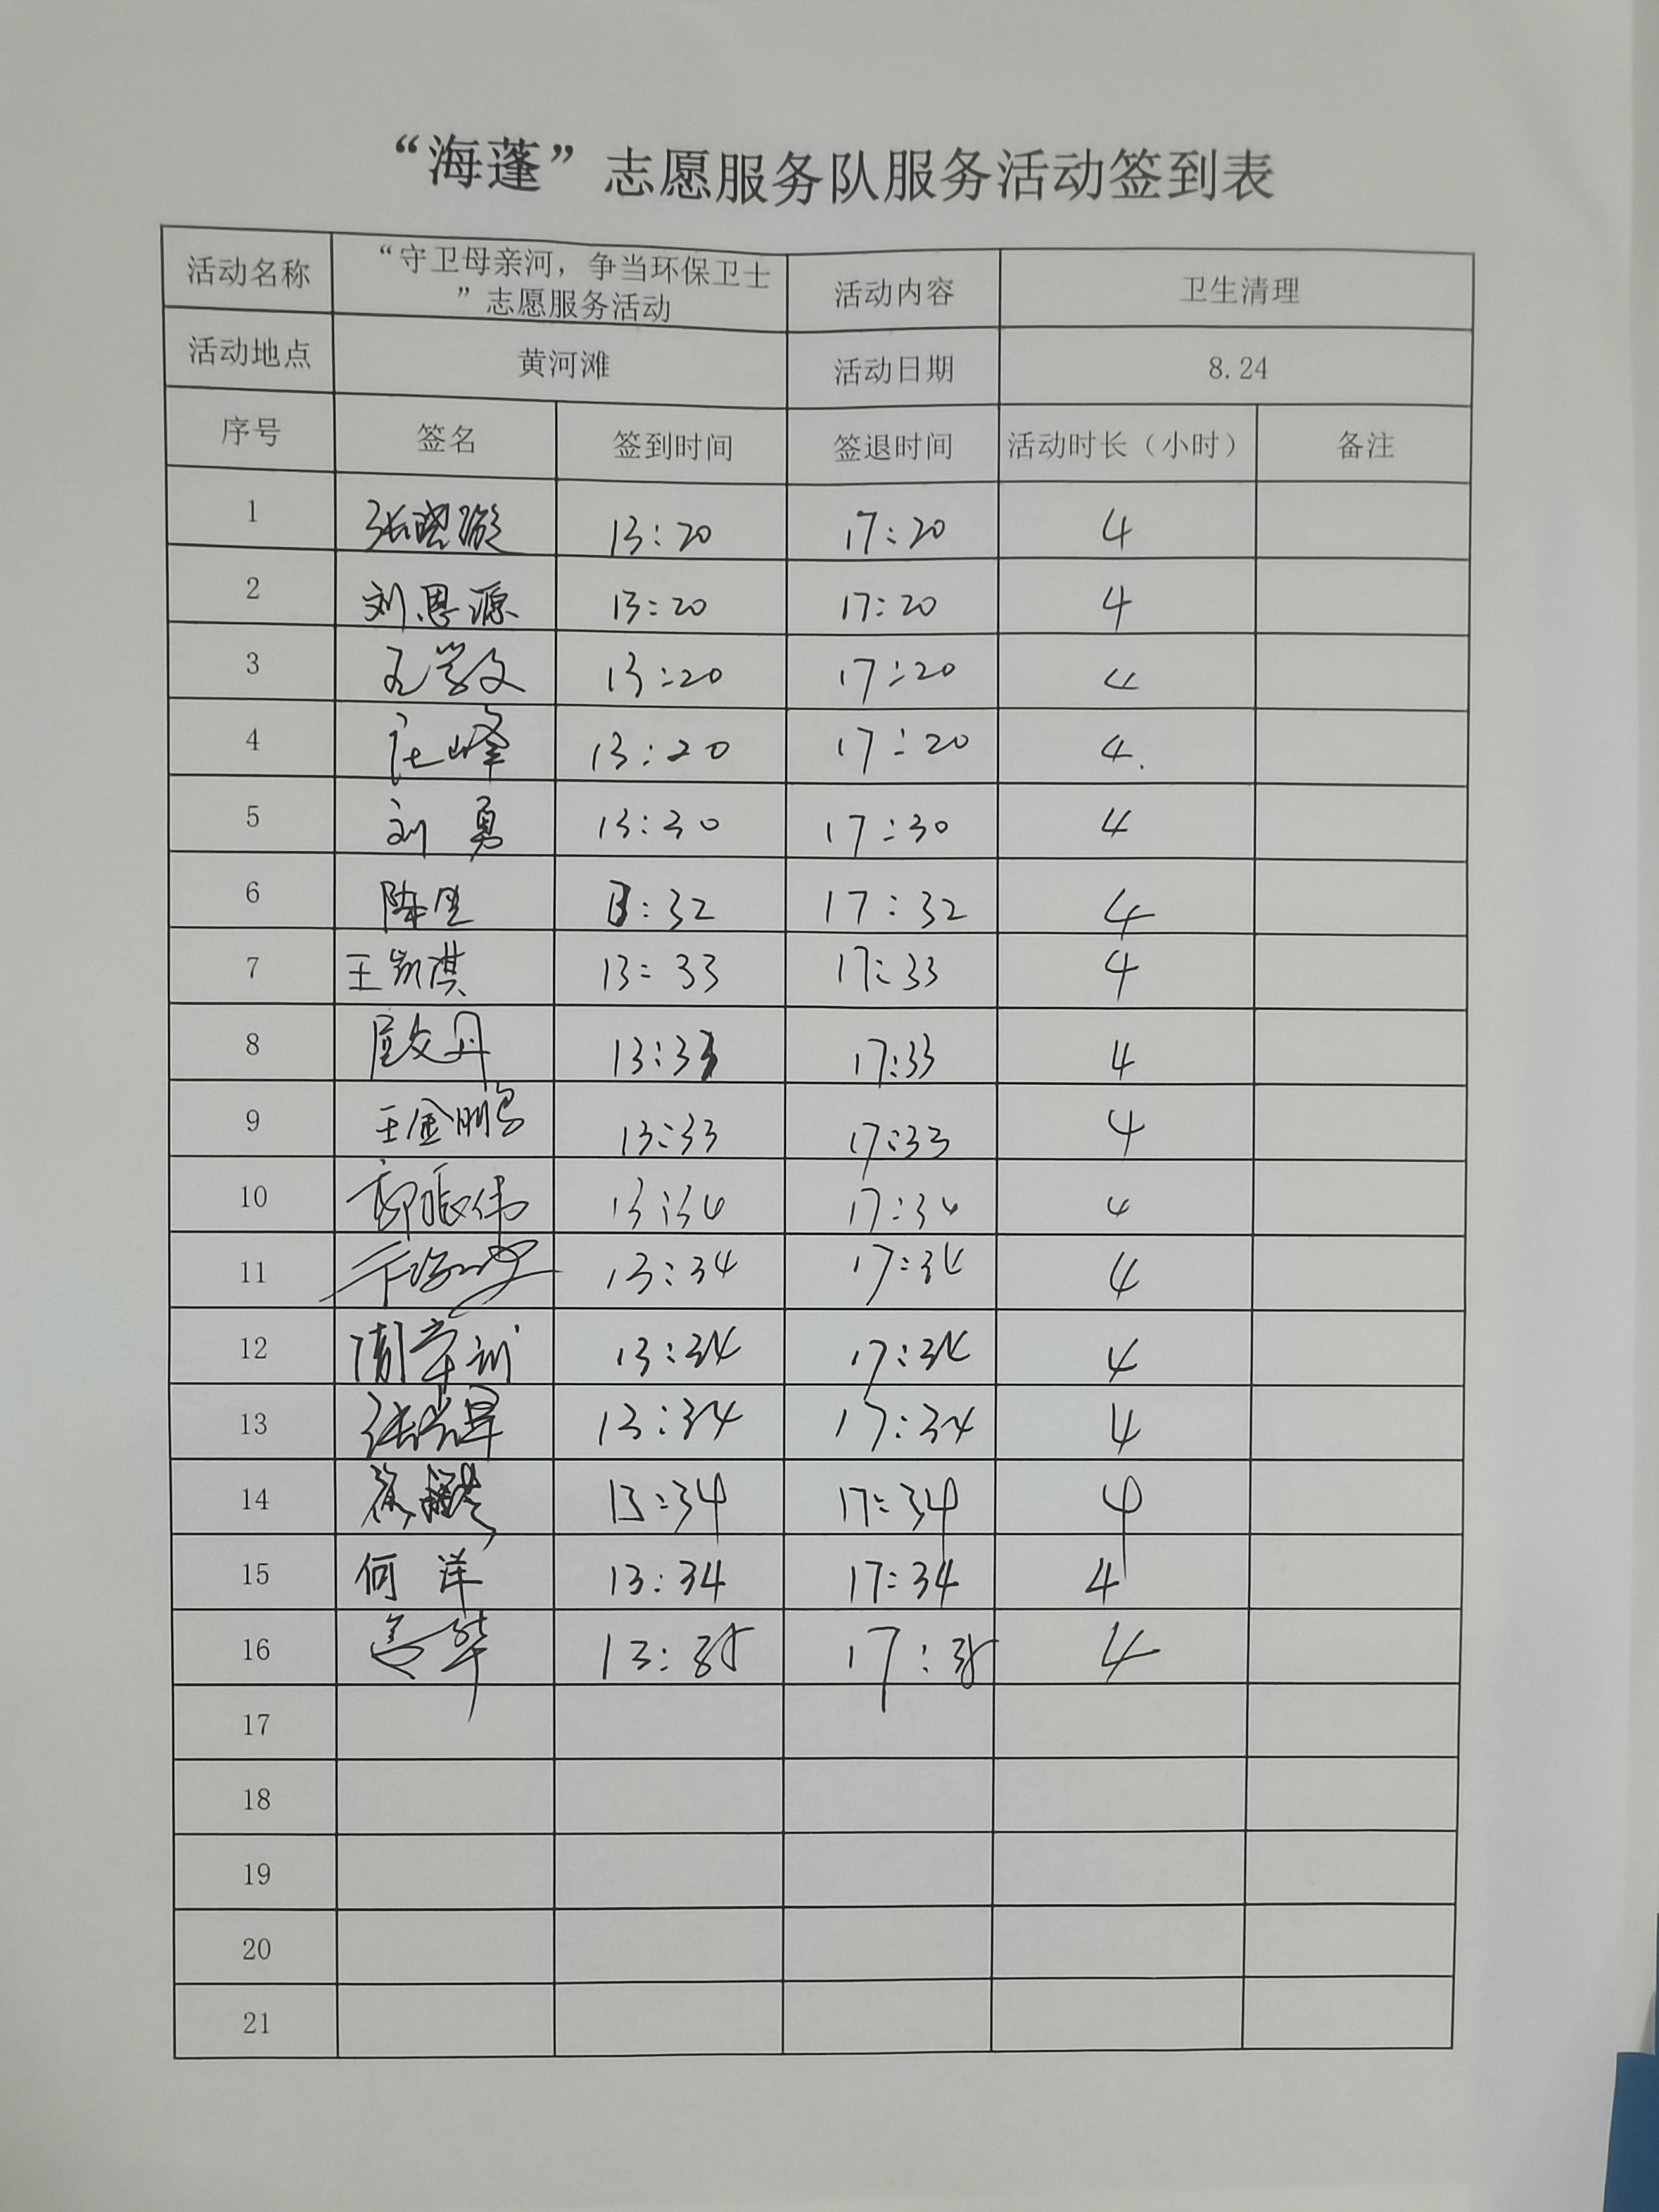 “海蓬”志愿服务队服务活动签到表
活动名称 “守卫母亲河，争当环保卫士”志愿服务活动 活动内容 卫生清理
活动地点 黄河滩 活动日期 8.24
序号 签名 签到时间 签退时间 活动时长（小时） 备注
1 张晓璇 13:20 17:20 4
2 刘恩源 13:20 17:20 4
3 学文 13:20 17:20 4
4 峰 13:20 17:20 4.
5 刘勇 13:30 17:30 4
6 陈 13:32 17:32 4
7 王凯淇 13:33 17:33 4
8 文丹 13:33 17:33 4
9 王金鹏 13:33 17:33 4
10 郭振伟 13:34 17:34 4
11 13:34 17:34 4
12 13:34 17:34 4
13 张 13:34 17:34 4
14 13:34 17:34 4
15 何洋 13:34 17:34 4
16 华 13:35 17:35 4
17
18
19
20
21